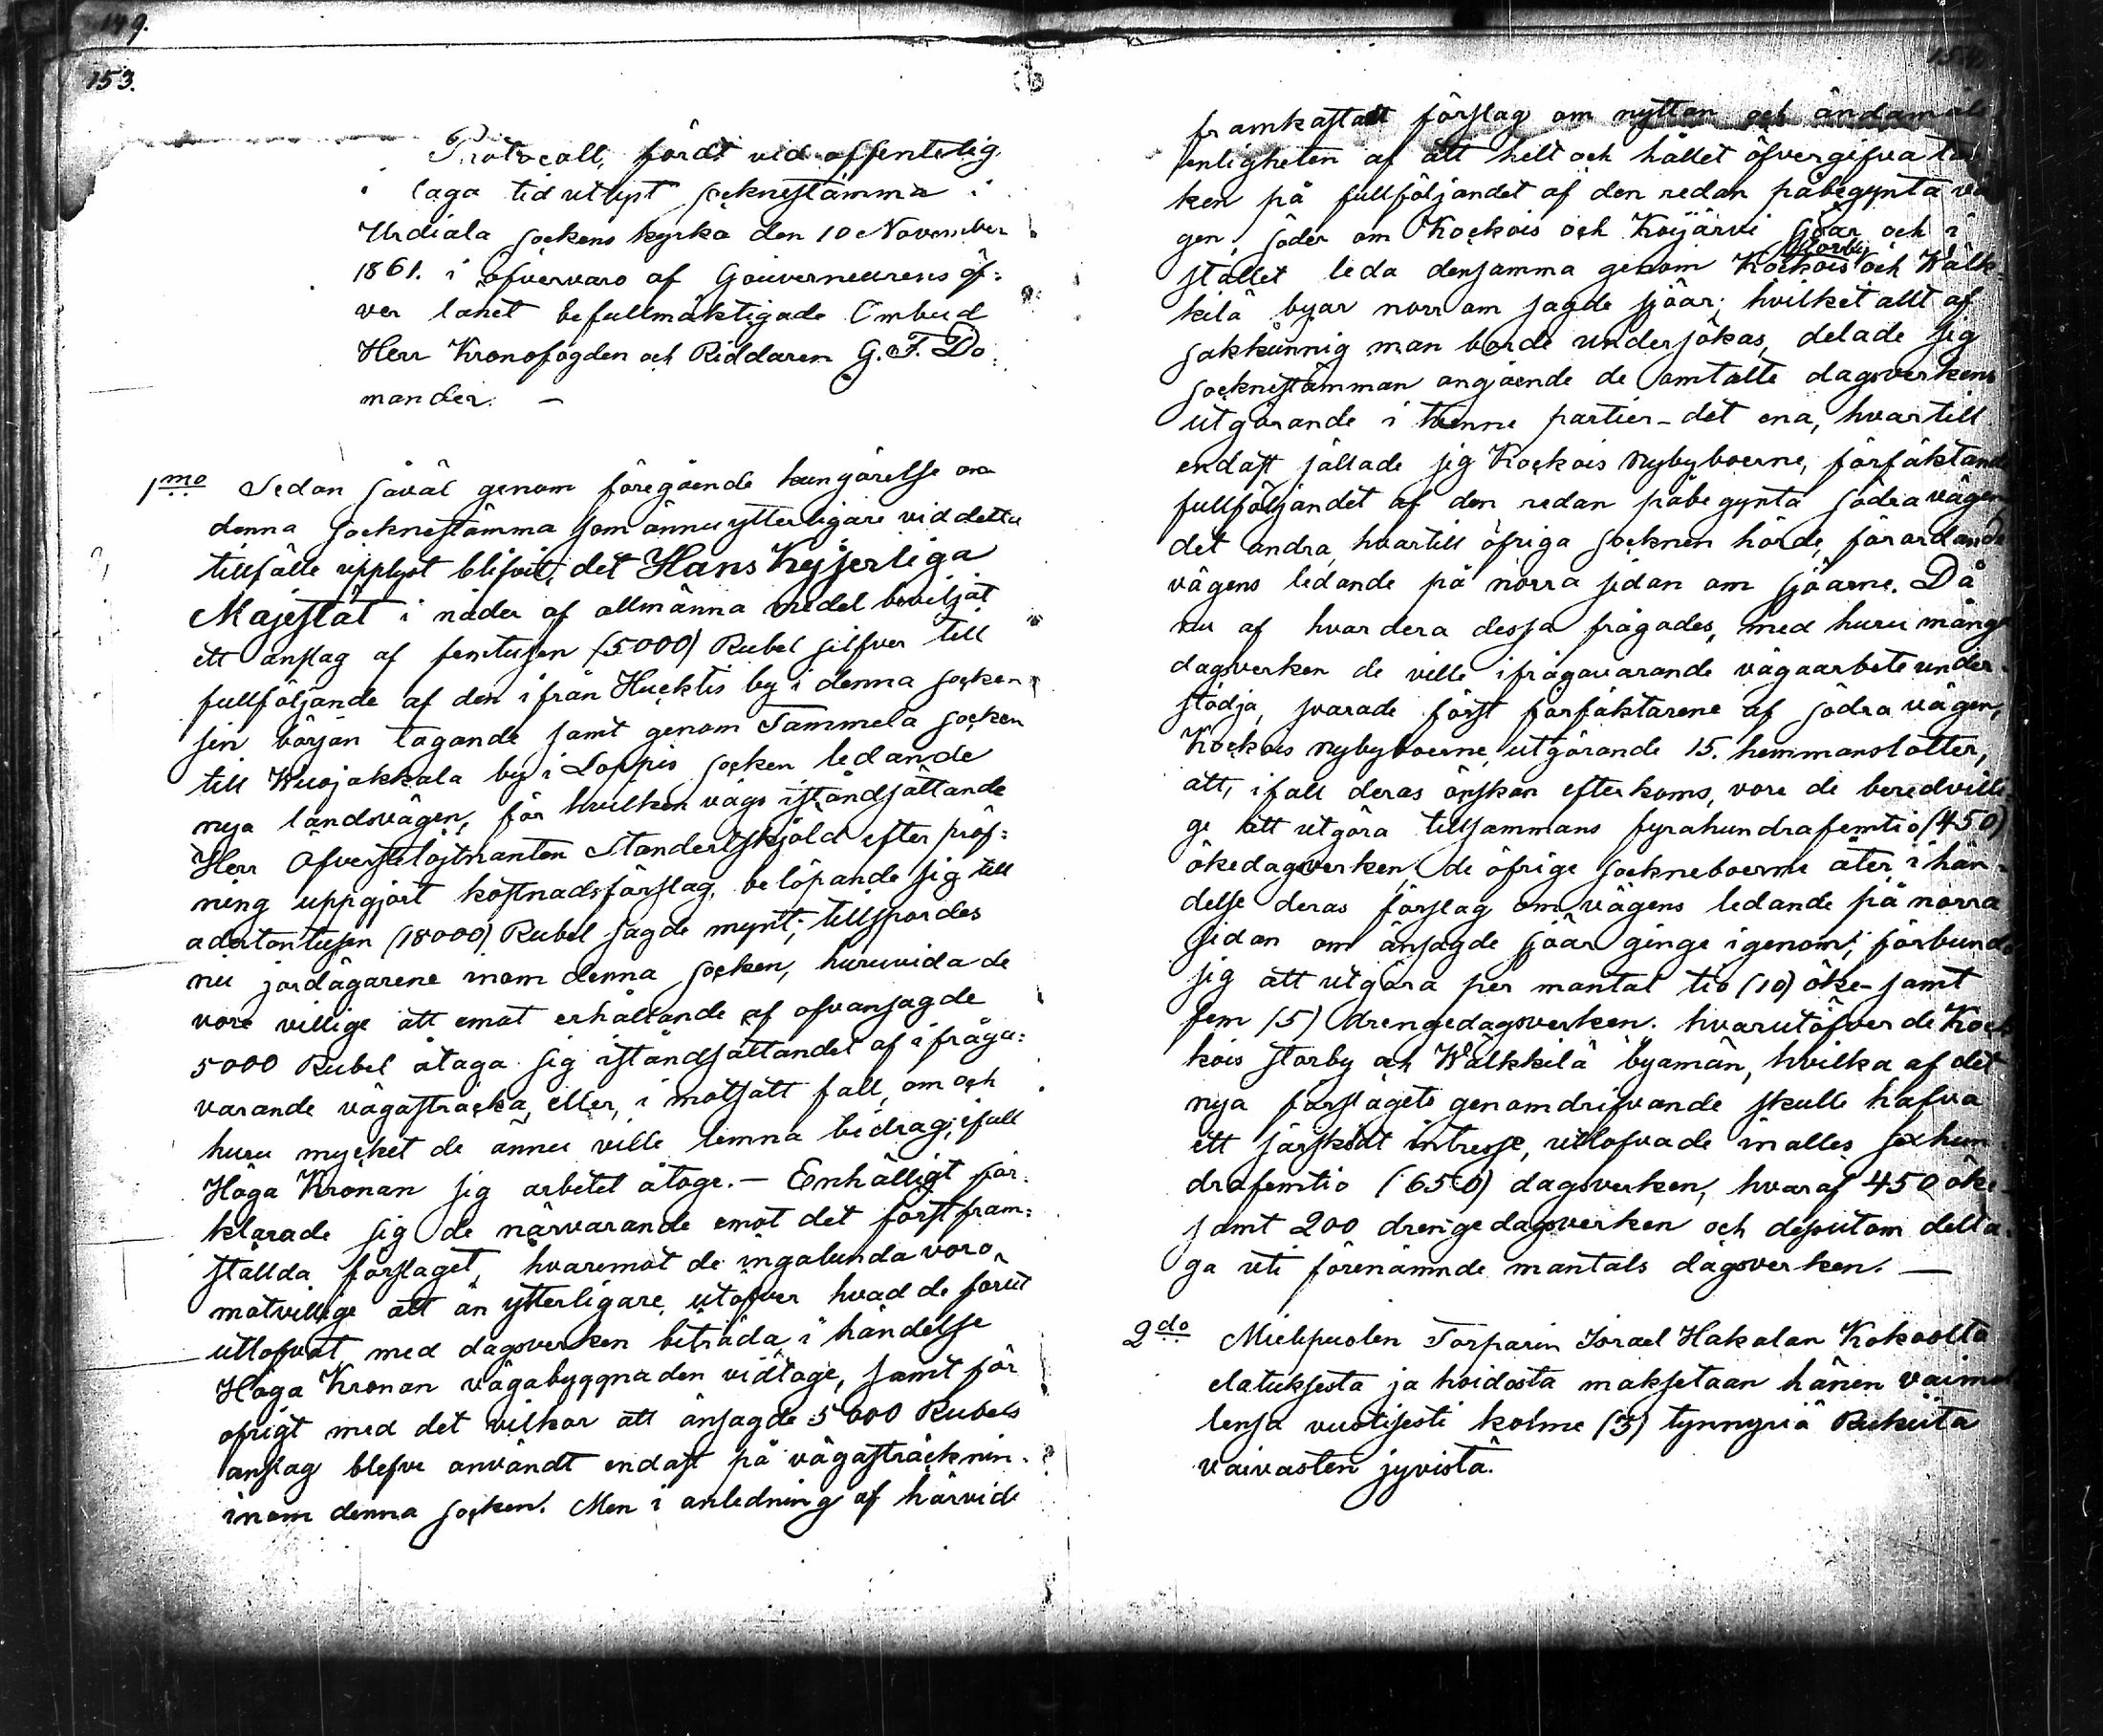 149.
153.
Protocoll, fördt vid offentelig
i laga tid utlyst socknestämma i
Urdiala sockens kyrka den 10 November
1861. i öfvervaro af Gouverneurens öf=
ver länet befullmäktigade Ombud
Herr Kronofogden och Riddaren G. F. Do=
mander. —
1mo Sedan såväl genom föregående kungörelse om
denna socknestämma som ännu ytterligare vid detta
tillfälle upplyst blifvit, det Hans Kejserliga
Majestät i nåder af allmänna medel beviljat
ett anslag af femtusen (5000) Rubel silfver till
fullföljande af den ifrån Hucktis by i denna socken
sin början tagande samt genom Tammela socken
till Wuojakkala by i Loppis socken ledande
nya landsvägen, för hvilken vägs iståndsättande
Herr Öfverstelöjtnanten Standertskjöld efter pröf=
ning uppgjort kostnadsförslag, belöpande sig till
adertontusen (18000) Rubel sagde mynt; tillspordes
nu jordägarene inom denna socken, huruvida de
vore villige att emot erhållande af ofvansagde
5000 Rubel åtaga sig iståndsättandet af ifråga=
varande vägasträcka, eller, i motsatt fall, om och
huru mycket de ännu ville lemna bidrag, ifall
Höga Kronan sig arbetet åtoge. — Enhälligt för=
klarade sig de närvarande emot det först fram=
ställda förslaget, hvaremot de ingalunda voro
motvillige att än ytterligare, utöfver hvad de förut
utlofvat med dagsverken biträda, i händelse
Höga Kronan vägabyggnaden vidtoge, samt för
öfrigt med det vilkor att ansagde 5000 Rubels
anslag blefve användt endast på vägasträcknin-
inom denna socken. Men i anledning af härvid
framkastadt förslag om nyttan och ändamåls
enligheten af att helt och hållet öfvergifva tan
ken på fullföljandet af den redan påbegynta vä
gen, söder om Kockois och Koijärvi sjöar och i
stället leda densamma genom Kockois Storby och Wälk
kilä byar norr om sagde sjöar; hvilket allt af
sakkunnig man borde undersökas, delade sig
socknestämman angående de omtalte dagsverkens
utgörande i tvenne partier – det ena, hvartill
endast sällade sig Kockois Nybyboerne, förfäktande
fullföljandet af den redan påbegynta södra vägen,
det andra, hvartill öfriga socknen hörde, förordande
vägens ledande på norra sidan om sjöarne. Då
nu af hvardera dessa frågades, med huru många
dagsverken de ville ifrågavarande vägaarbete under-
stödja, svarade först förfäktarene af södra vägen,
Kockois Nybyboerne, utgörande 15. hemmanslotter,
att, ifall deras önskan efterkoms, vore de beredvilli
ge att utgöra tillsammans fyrahundrafemtio (450)
ökedagsverken, de öfrige sockneboerne åter, i hän-
delse deras förslag om vägens ledande på norra
sidan om ansagde sjöar ginge igenom; förbundo
sig att utgöra per mantal tio (10) öke- samt
fem (5) drengedagsverken. hvarutöfver de Kock
kois storby och Wälkkilä byamän, hvilka af det
nya förslagets genomdrifvande skulle hafva
ett särskildt intresse, utlofvade inalles sexhun
drafemtio (650) dagsverken, hvaraf 450 öke-
samt 200 drengedagsverken och dessutom delta-
ga uti förenämnde mantals dagsverken. —
2do Mielipuolen Torparin Israel Hakalan Kokoolta
elatuksesta ja hoidosta maksetaan hänen vaimol
lensa vuotisesti kolme (3) tynnyriä Rukiita
vaivasten jyvistä.